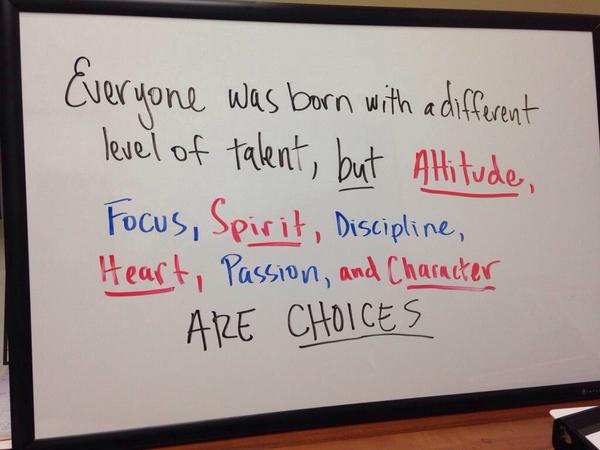 Everyone was born with a different
level of talent, but Attitude,
Focus, Spirit, Discipline,
Heart, Passion, and Character
ARE CHOICES